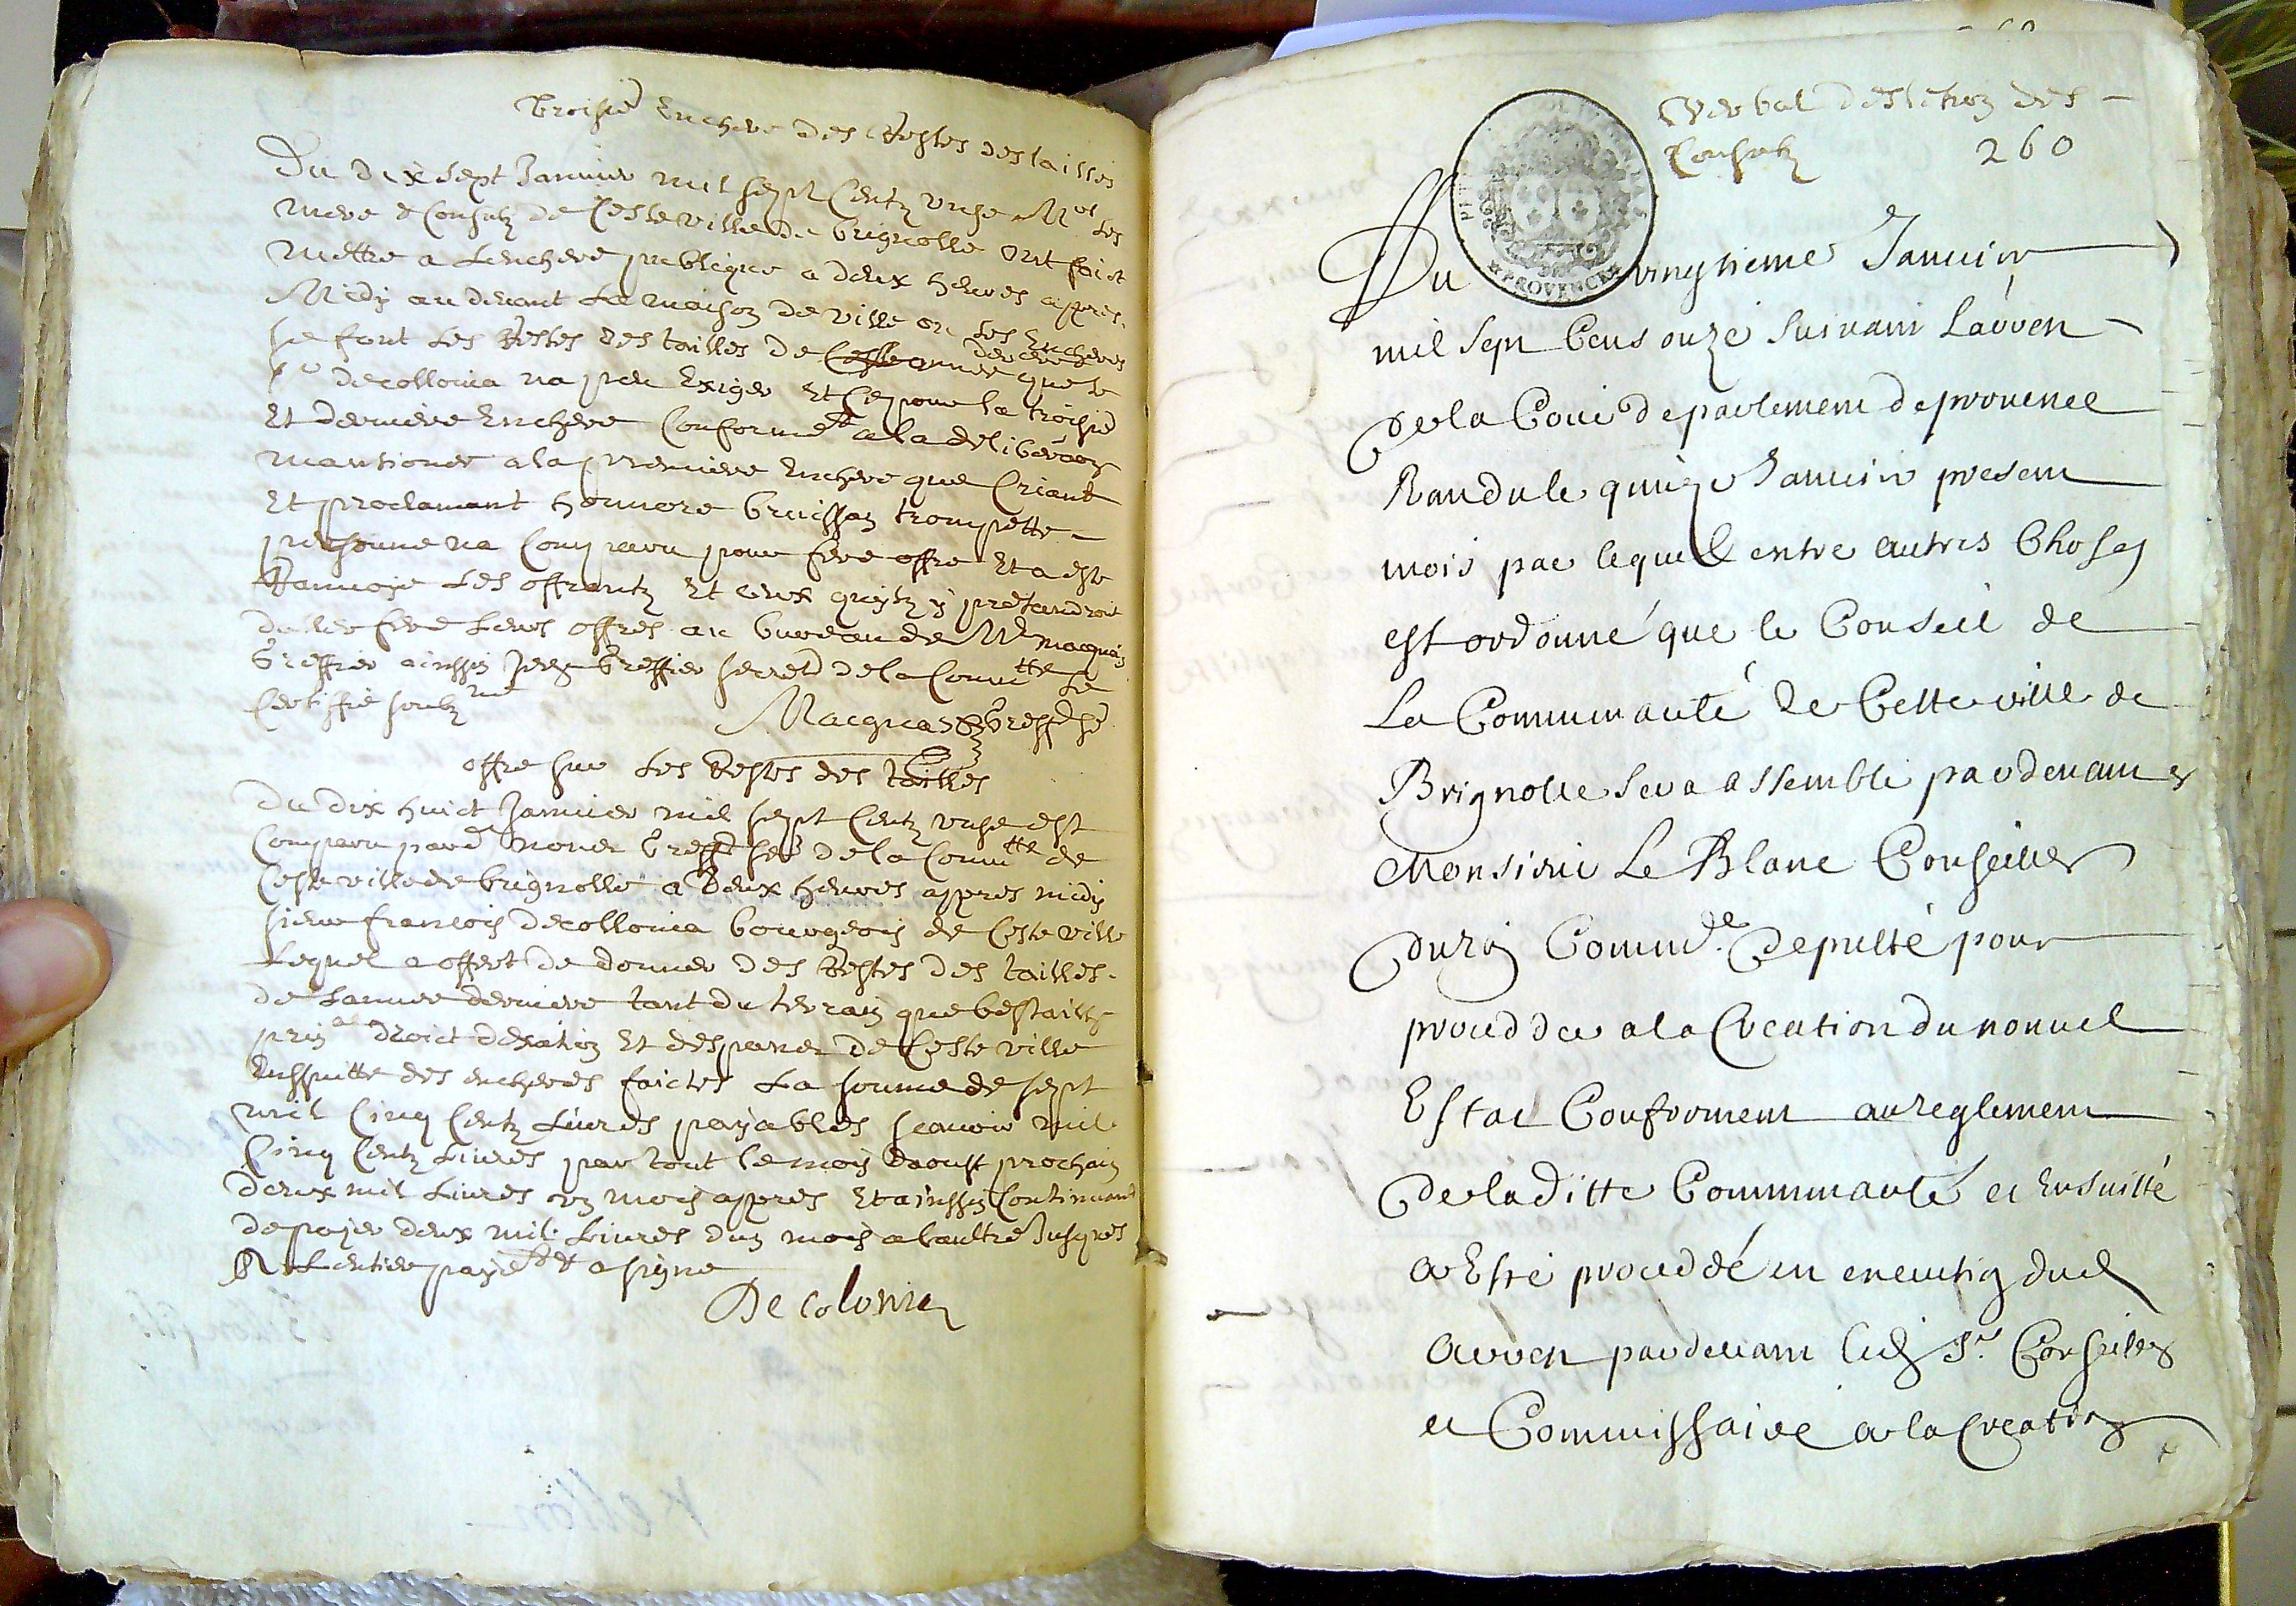 Troisie Enchere des Restes des tailles
Du dix sept Janvier mil sept Centz unse Mrs Les
mere & Consulz de Ceste ville de brignolle ont faict
mettre a Lenchere publique a deux heures appres
Midy au devant La maison de ville ou Les Encheres
se font Les Restes des tailles de Ceste année derniere que le
Sr decollonia na peu Exiger Et Ce pour la troisie
Et derniere Enchere Conformet a la deliberaon
mantionee a la premiere Enchere que Criant
Et proclamant honnore bruissan trompette
personne na Comparu pour fere offre Et a este
Ranvoye Les offrantz Et ceux quy y pretandront
daller fere Leurs offres au bureau de Me macquas
greffier ainssin Je greffier secred de la Commtte Le
Certiffie soubzne
Macquas Greff se
offre sur Les Restes des tailles
Du dix huict Janvier mil sept Centz unse est
Comparu pard nous greff ser de la Commtte de
Ceste ville de brignolle a deux heures appres midy
sieur francois decollonia bourgeois de Ceste ville
Lequel a offert de donner des Restes des tailles
de Lannee derniere tant du terrain que bestailh
prin droict dexation Et despance de Ceste ville
Ensuitte des encheres faictes La somme de sept
mil Cinq Centz Livres payables scavoir mil
Cinq Centz Livres par tout le mois daoust prochain
deux mil Livres un mois appres Et ainssin Continuant
de payer deux mil Livres dun mois a laultre Jusques
A Lentier payet & a signe
De colonia
Verbal deslection des
Consulz 260
Du vingtieme Janvier
mil sept Cens onze suivant Laʼrest
de la Cour de parlement de provence
Randu le quinze Janvier present
mois par lequel entre autres Choses
est ordonné que le Conseil de
La Communauté de Cette ville de
Brignolle sera assemblé pardevant
Monsieur Le Blanc Conseiller
du roy Commre deputté pour
procedder a la Creation du nouvel
Estat Conforment au reglement
de la ditte Communauté et Ensuitte
a Esté proceddé en execution dud
arrest pardevant led Sr Conseiller
et Commissaire a la Creation
PROVENCE